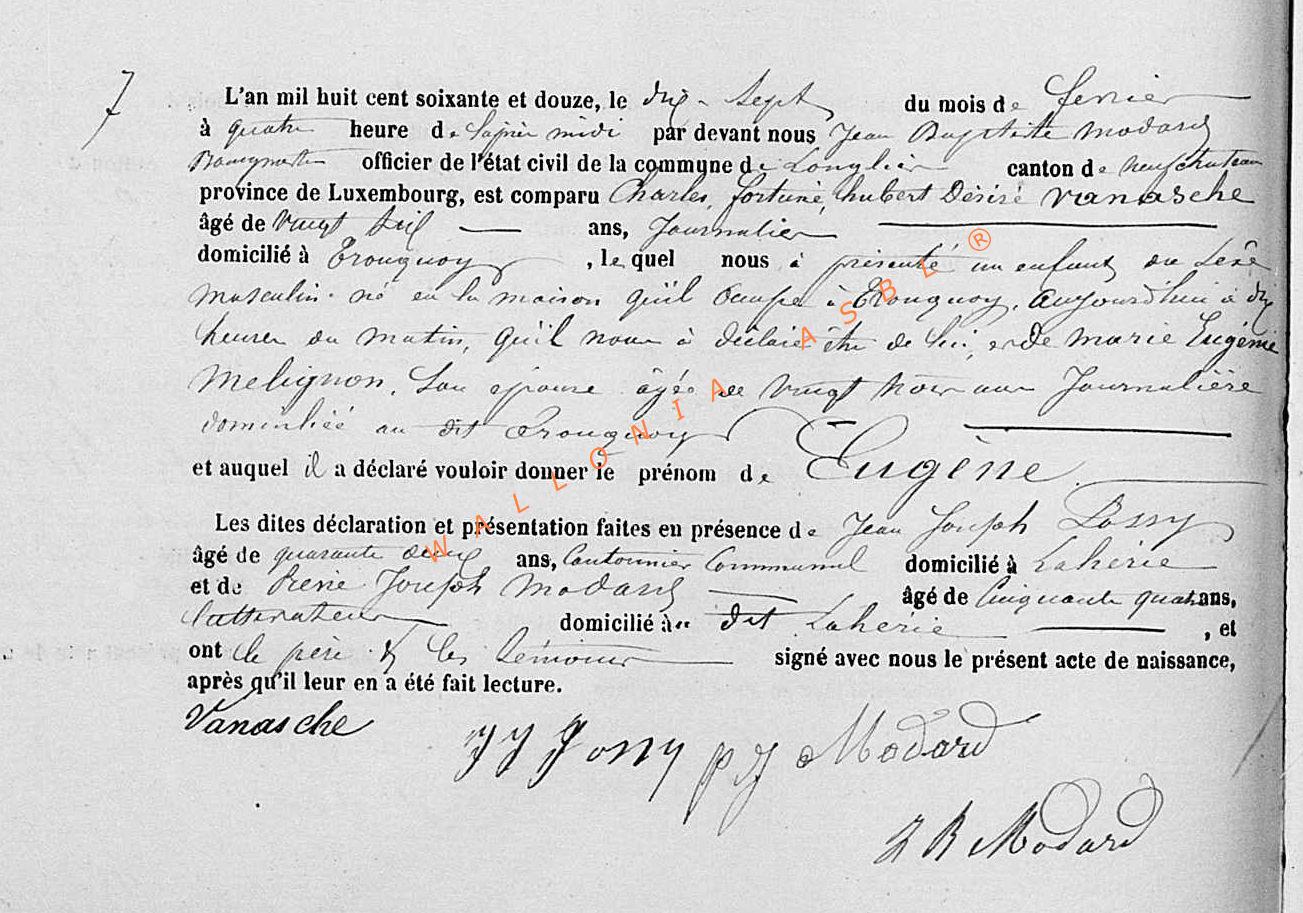 7
L'an mil huit cent soixante et douze, le dix-sept du mois de fevrier
à quatre heure de l'après midi par devant nous Jean Baptiste Modard
Bourgmestre officier de l'état civil de la commune de Longlier canton de neufchateau
province de Luxembourg, est comparu Charles, fortuné, hubert Désiré Vanasche
âgé de vingt six ans, Journalier
domicilié à Tronquoy, lequel nous à présenté un enfant du sexe
masculin né en la maison qu'il occupe à Tronquoy, aujourd'hui à dix
heures du matin, qu'il nous à déclaré être de lui, et de marie Eugénie
Melignon, son épouse âgée de vingt ans Journalière
domiciliée au dit Tronquoy
et auquel il a déclaré vouloir donner le prénom de Eugène
Les dites déclaration et présentation faites en présence de Jean Joseph
âgé de quarante deux ans, Cantonnier Communal domicilié à Laherie
et de Joseph Modard âgé de Cinquante quatre ans,
Cultivateur domicilié à dit Laherie, et
ont le père & les témoins signé avec nous le présent acte de naissance,
après qu'il leur en a été fait lecture.
Vanasche
J J
p J Modard
J B Modard
WALLONIA ASBL ®